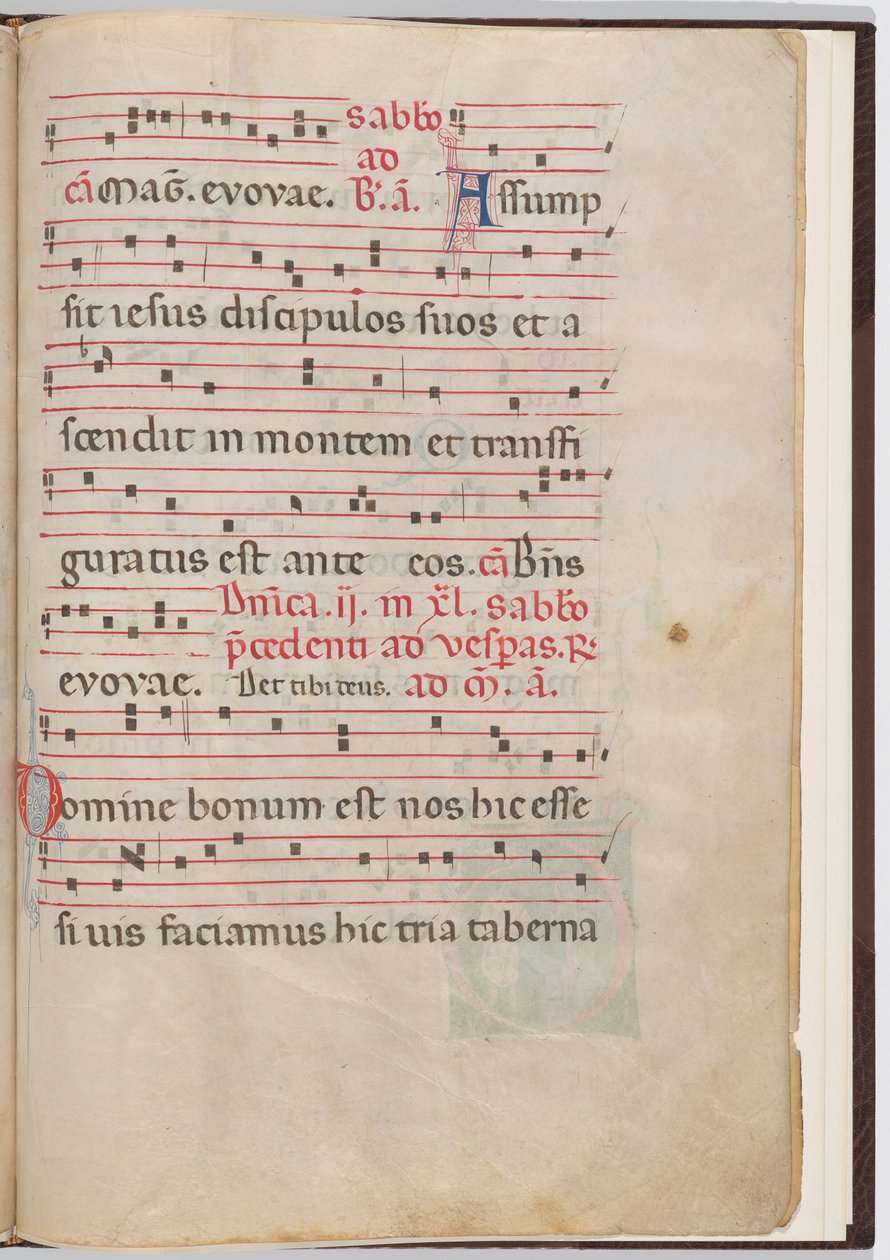 sabbo
ad
cā Mag̅. evovae. B᷑. ā. Assump
sit iesus discipulos suos et a
scendit in montem et transfi
guratus est ante eos. cā Bn̄s
Dn̄ica. ij. in xl. sabbo
p̄cedenti ad vesꝑas. R̷
evovae. Det tibi deus. ad M̄. ā.
Domine bonum est nos hic esse
si uis faciamus hic tria taberna